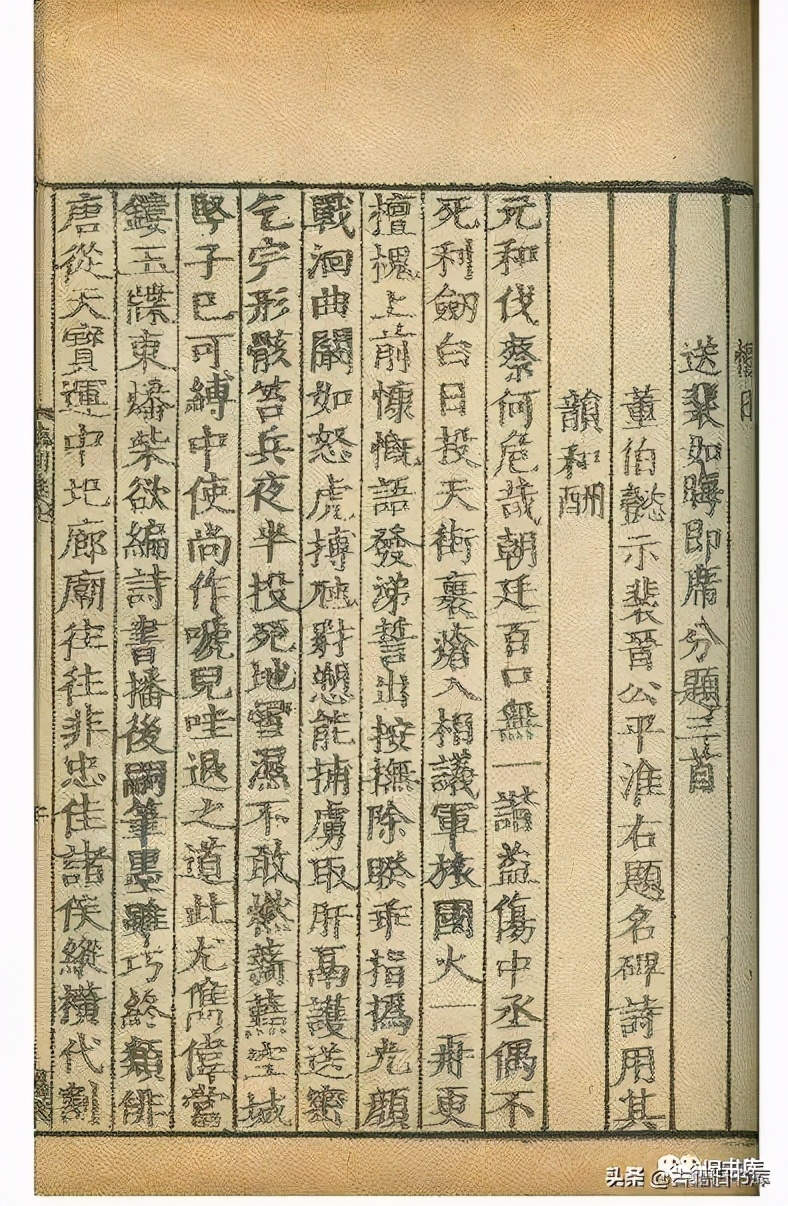 送裴如晦即席分題三首
董伯懿示裴晉公平淮右題名碑詩用其
韻和酬
元和伐蔡何危哉朝廷百口無一諧盜傷中丞偶不
死利劍白日投天街裹瘡入相議軍旅國火一再更
檀槐上前慷慨語發涕誓出按撫除睽乖指撝光顏
戰洄曲闞如怒虎搏虺豺愬能捕虜取肝鬲護送密
乞完形骸笞兵夜半投死地雪濕不敢燃薪䕸空城
豎子已可縛中使尚作嗁兒哇退之道此尤儁偉當
鏤玉牒東燔柴欲編詩書播後嗣筆墨雖巧終類俳
唐從天寶運中圮廊廟往往非忠佳諸侯縱橫代割
头条 @古籍旧书库
旧书库